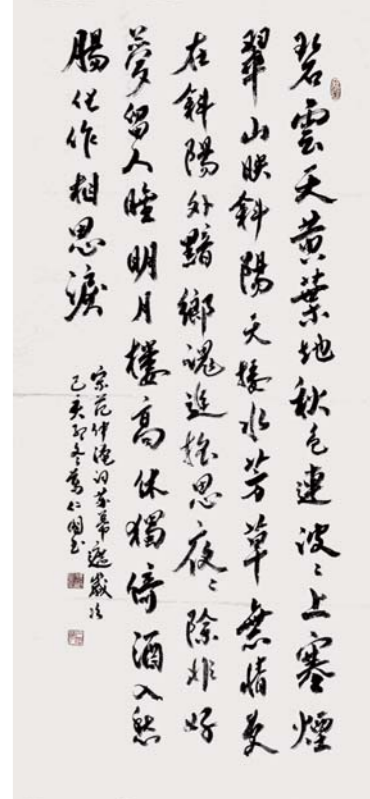 碧雲天黄葉地秋色連波〻上寒煙
翠山映斜陽天接水芳草無情更
在斜陽外黯鄉魂追旅思夜〻除非好
夢留人睡明月樓高休獨倚酒入愁
腸化作相思淚
宋范仲淹詞蘇幕遮歲次
己亥初冬仁國书